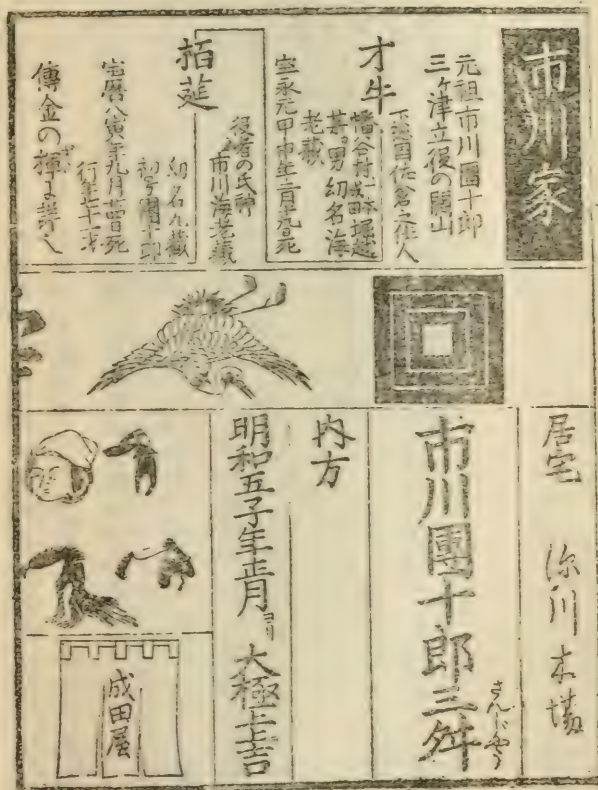 市川家
元祖市川團十郎
三ヶ津立役の開山
才牛
下総国佐倉之産人
幡谷村
男幼名海
老蔵
宝永元甲申年二月十九日死
栢莚
役者の氏神
市川海老蔵
幼名九蔵
初字團十郎
宝暦八寅年九月廿四日死
行年七十一才
傳金の揮よ詳入
居宅 深川木場
市川團十郎三舛
さんじやう
内方
明和五子年正月 大極上上吉
成田屋